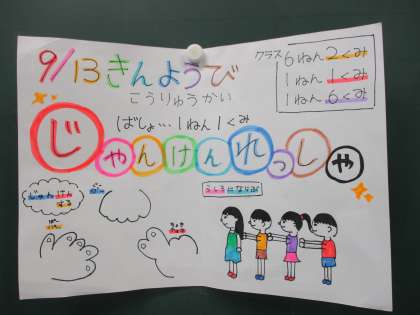 9/13きんようび
こうりゅうかい
クラス 6ねん2くみ
1ねん1くみ
1ねん6くみ
ばしょ…1ねん1くみ
じゃんけんれっしゃ
じゃんけん
する
うしろにならぶ